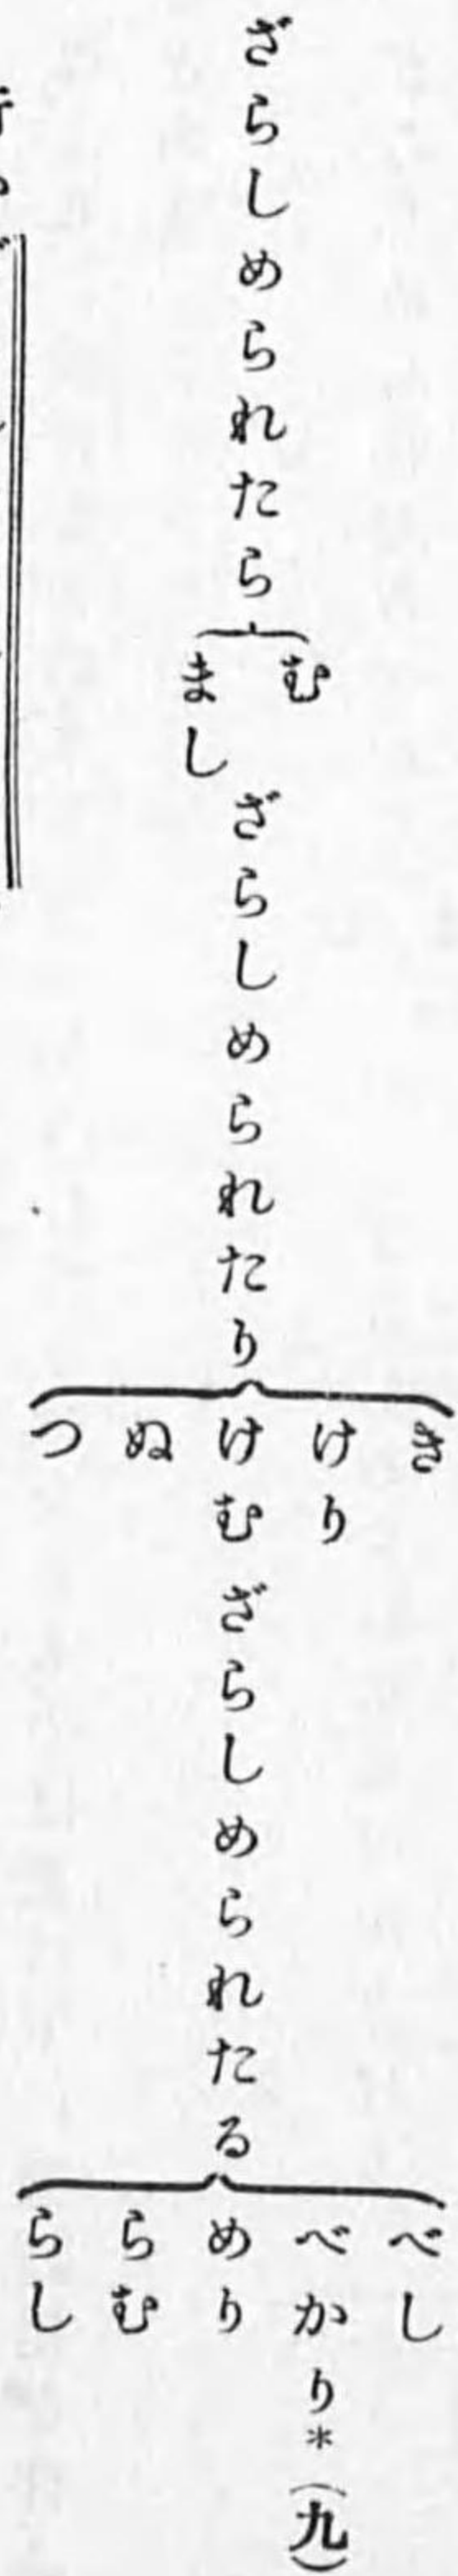 ざらしめられたら
む
まし
ざらしめられたり
き
けり
けむ
ぬ
つ
ざらしめられたる
べし
べかり*(九)
めり
らむ
らし